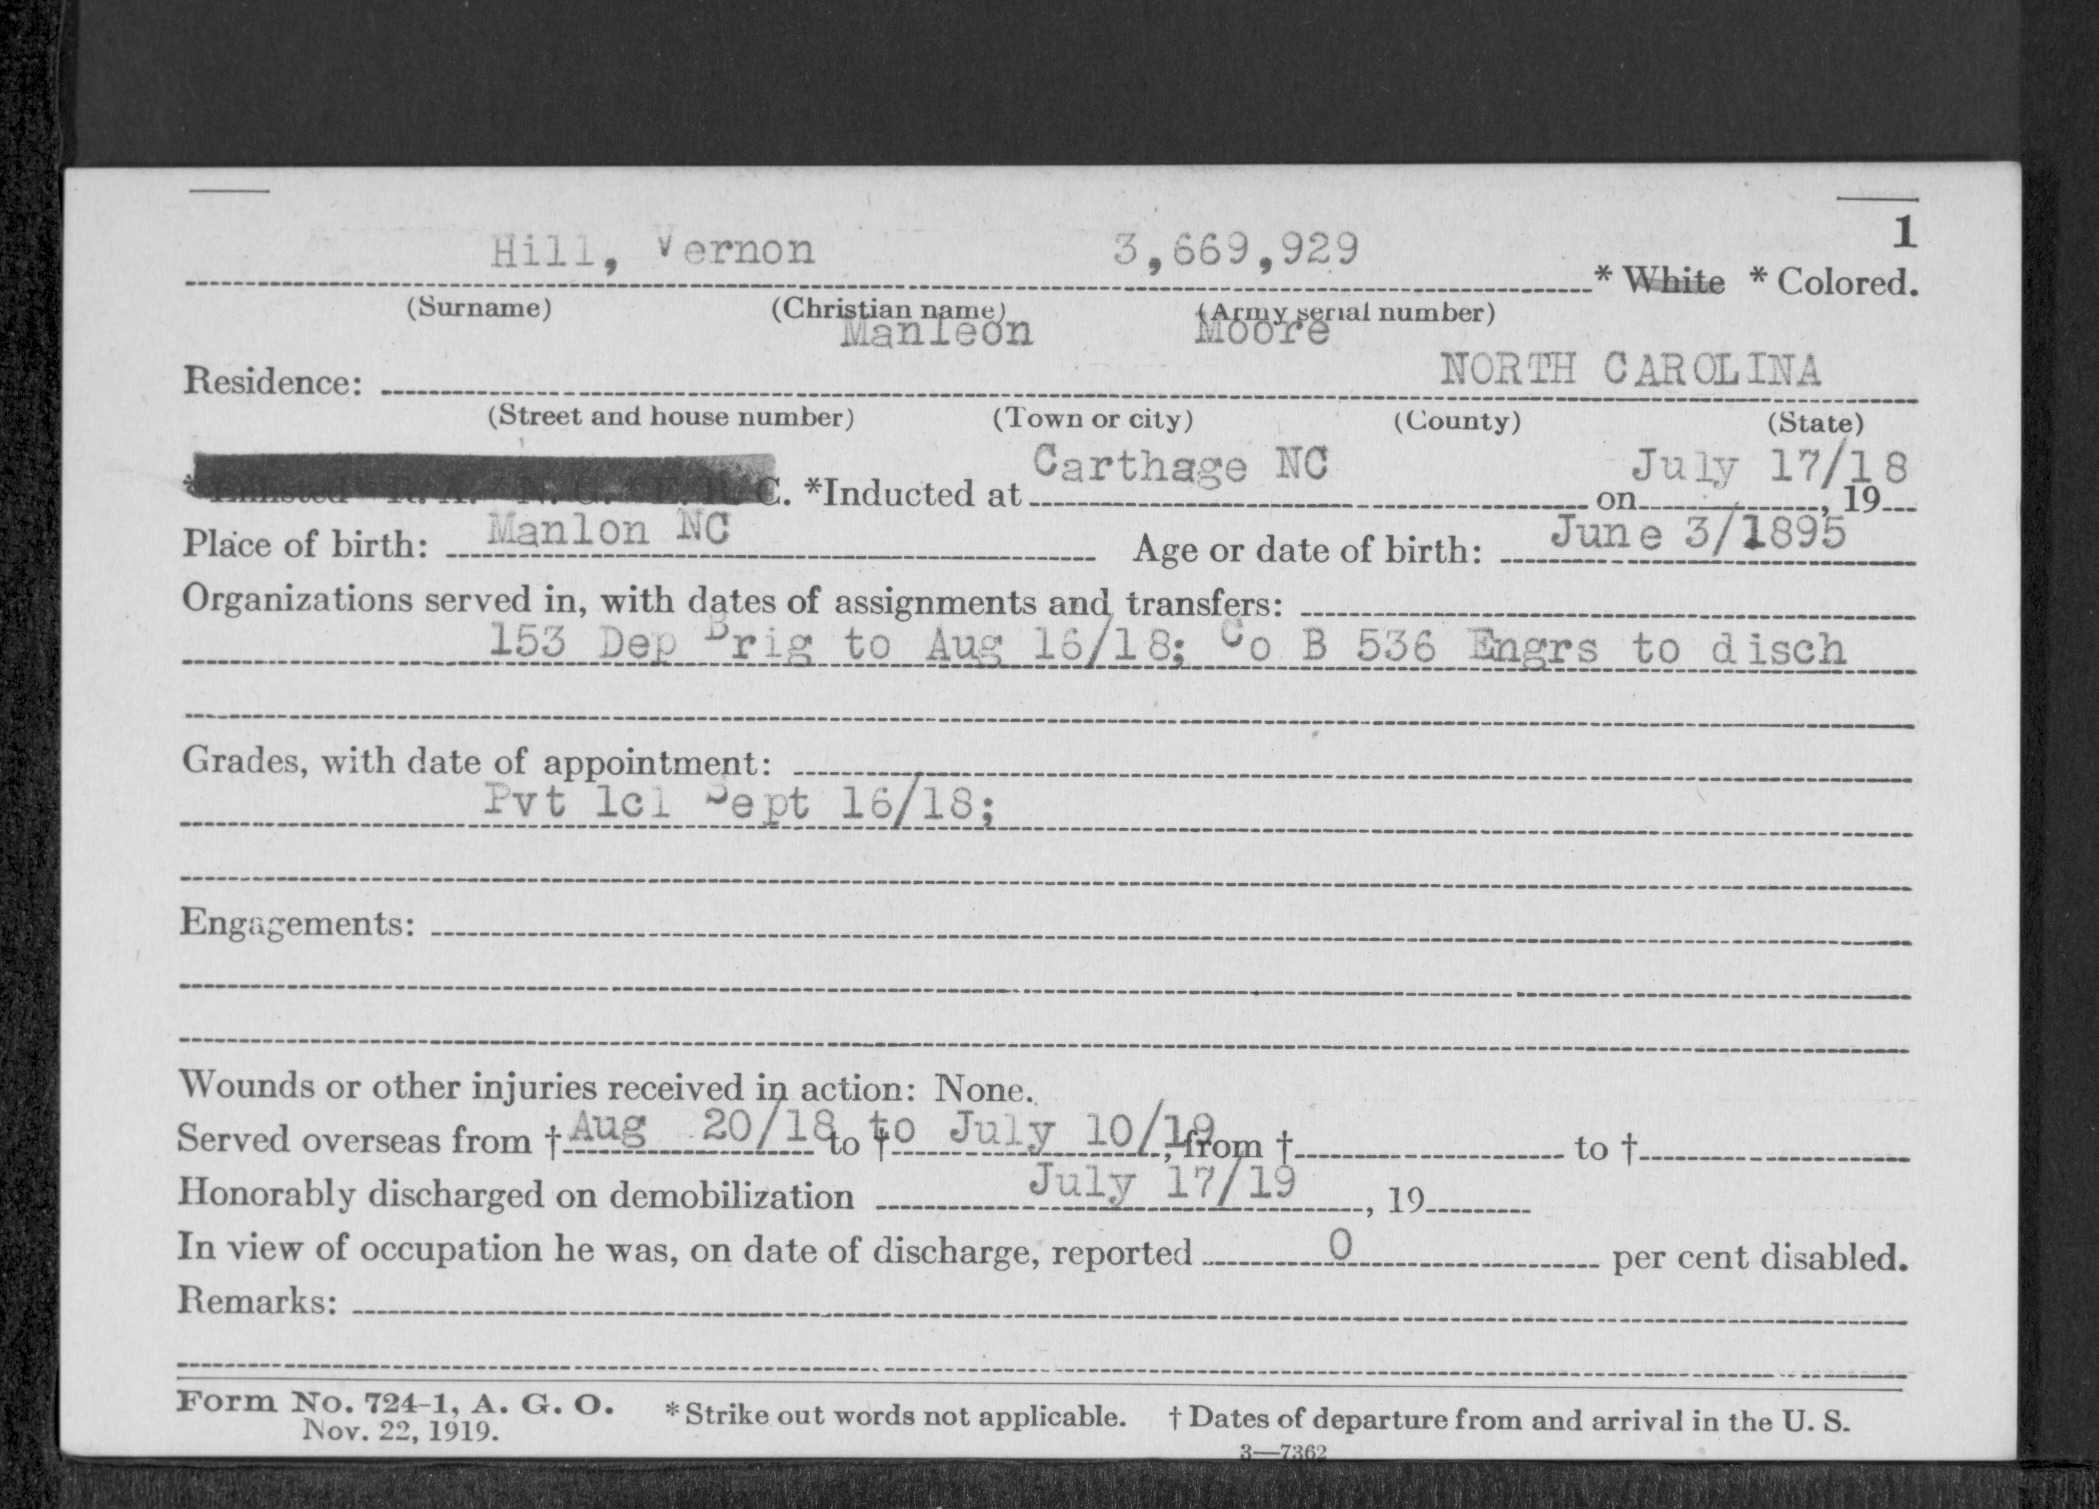 1
Hill, Vernon 3,669,929 * White * Colored.
(Surname) (Christian name) (Army serial number)
Manleon Moore
Residence: NORTH CAROLINA
(Street and house number) (Town or city) (County) (State)
Carthage NC July 17/18
*Enlisted R. A. N. G. E. R. C. *Inducted at on , 19
Place of birth: Manlon NC Age or date of birth: June 3/1895
Organizations served in, with dates of assignments and transfers:
153 Dep Brig to Aug 16/18; Co B 536 Engrs to disch
Grades, with date of appointment:
Pvt 1cl Sept 16/18;
Engagements:
Wounds or other injuries received in action: None.
Served overseas from † Aug 20/18 to † to July 10/19, from † to †
Honorably discharged on demobilization July 17/19, 19
In view of occupation he was, on date of discharge, reported 0 per cent disabled.
Remarks:
Form No. 724-1, A. G. O. * Strike out words not applicable. † Dates of departure from and arrival in the U. S.
Nov. 22, 1919.
3—7362